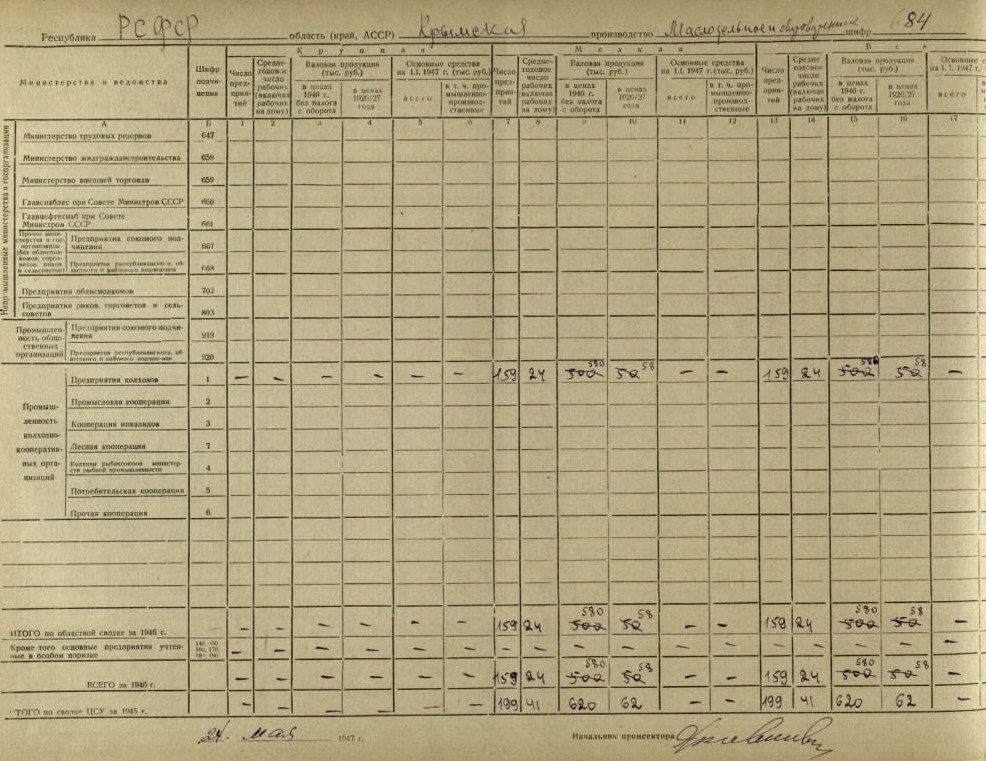 Республика РСФСР область (край, АССР) Крымская производство Маслодельное и сыроварение шифр 684
Министерства и ведомства
Шифр подчинения
Крупная
Мелкая
В
Число предприятий
Среднегодовое число рабочих (включая рабочих на дому)
Валовая продукция (тыс. руб.)
в ценах 1946 г. без налога с оборота
в ценах 1926/27 года
Основные средства на 1.I. 1947 г. (тыс. руб.)
всего
в т. ч. промышленно-производственные
Число предприятий
Среднегодовое число рабочих (включая рабочих на дому)
Валовая продукция (тыс. руб.)
в ценах 1946 г. без налога с оборота
в ценах 1926/27 года
Основные средства на 1.I. 1947 г. (тыс. руб.)
всего
в т. ч. промышленно-производственные
Число предприятий
Среднегодовое число рабочих (включая рабочих на дому)
Валовая продукция (тыс. руб.)
в ценах 1946 г. без налога с оборота
в ценах 1926/27 года
Основные с
на 1.I. 1947
всего
А Б 1 2 3 4 5 6 7 8 9 10 11 12 13 14 15 16 17
Непромышленные министерства и госорганизации
Министерство трудовых резервов 647
Министерство жилгражданстроительства 658
Министерство внешней торговли 659
Главснаблес при Совете Министров СССР 660
Главнефтеснаб при Совете Министров СССР 661
Предприятия союзного подчинения 667
668
Предприятия облисполкомов 702
Предприятия риков, горсоветов и сельсоветов 803
Промышленность общественных организаций
Предприятия союзного подчинения 919
920
Промышленность колхозно-кооперативных организаций
Предприятия колхозов 1 – – – – – – 159 24 502 580 52 58 – – 159 24 502 580 52 58 –
Промысловая кооперация 2
Кооперация инвалидов 3
Лесная кооперация 7
Колхозы рыбаксоюзов министерств рыбной промышленности 4
Потребительская кооперация 5
Прочая кооперация 6
ИТОГО по областной сводке за 1946 г. – – – – – – 159 24 502 580 52 58 – – 159 24 502 580 52 58 –
Кроме того основные предприятия учтенные в особом порядке – – – – – – – – – – – – – – – – –
ВСЕГО за 1946 г. – – – – – – 159 24 502 580 52 58 – – 159 24 502 580 52 58 –
ИТОГО по сводке ЦСУ за 1945 г. – – – – – – 199 41 620 62 – – 199 41 620 62 –
24. мая 1947 г. Начальник промсектора